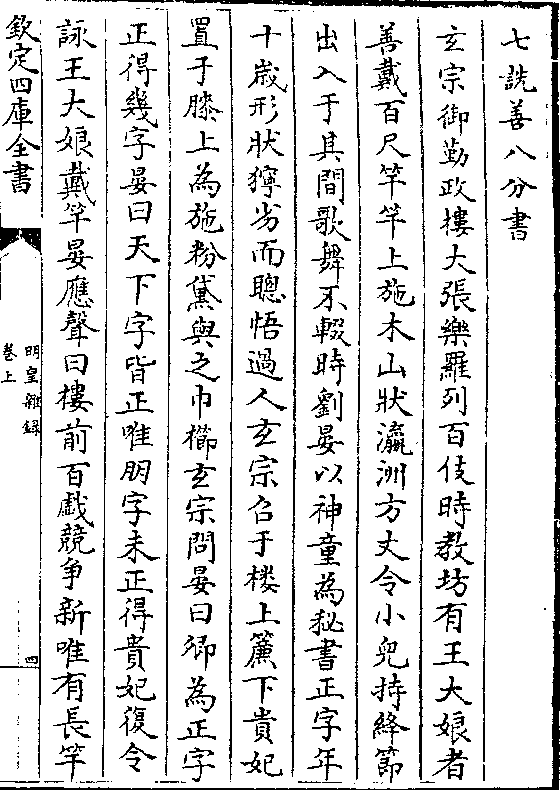 七詵善八分書
玄宗御勤政樓大張樂羅列百伎時教坊有王大娘者
善戴百尺竿竿上施木山狀瀛洲方丈令小兒持絳節
出入于其間歌舞不輟時劉晏以神童為秘書正字年
十歲形狀獰劣而聰悟過人玄宗召于樓上簾下貴妃
置于膝上為施粉黛與之巾櫛玄宗問晏曰卿為正字
正得幾字晏曰天下字皆正唯朋字未正得貴妃復令
詠王大娘戴竿晏應聲曰樓前百戲競爭新唯有長竿
欽定四庫全書
明皇雜録
卷上
四